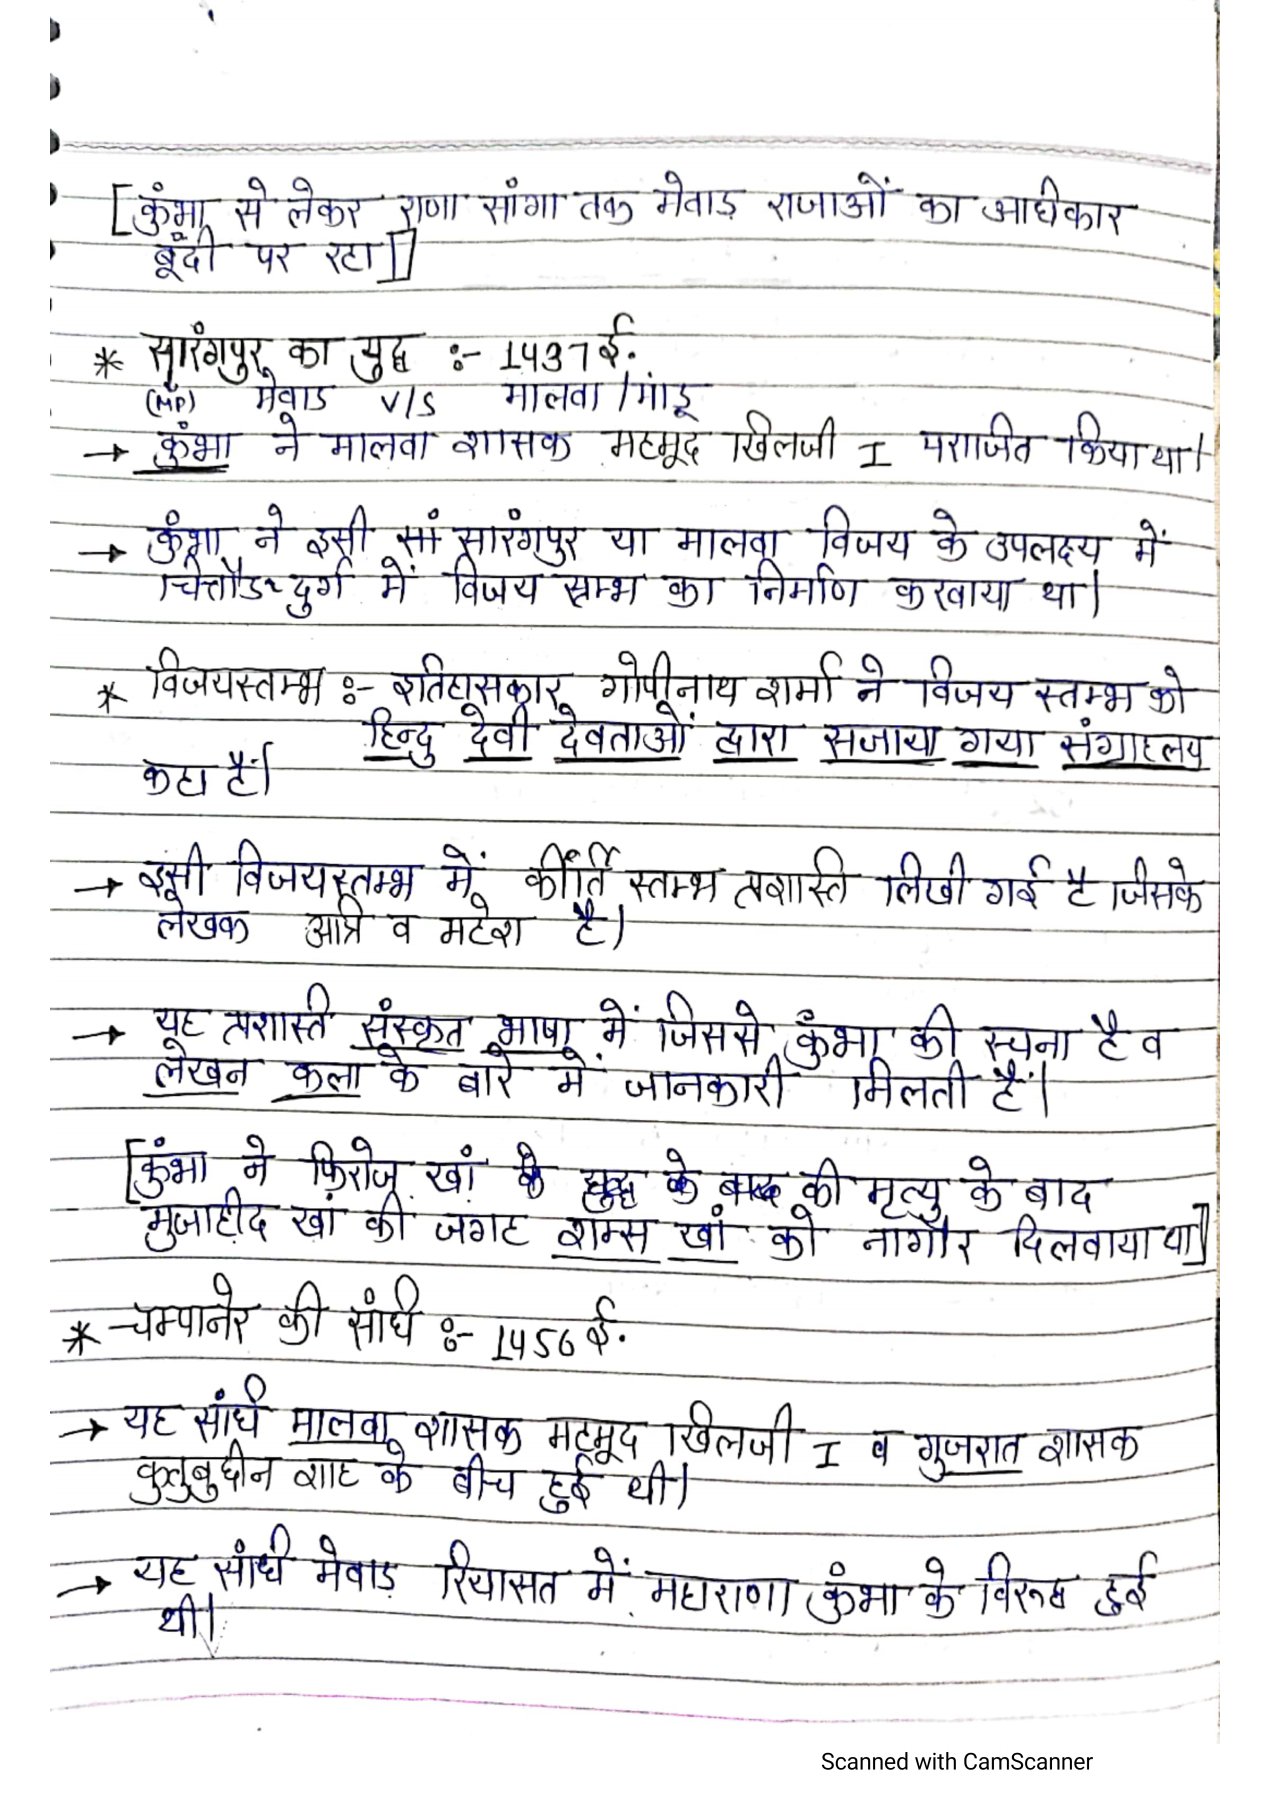 [कुंभा से लेकर राणा सांगा तक मेवाड़ राजाओं का अधिकार
बूंदी पर रहा]
* सारंगपुर का युद्ध :- 1437 ई.
(MP) मेवाड v/s मालवा/मांडू
→ कुंभा ने मालवा शासक महमूद खिलजी I पराजित किया था।
→ कुंभा ने इसी सां सारंगपुर या मालवा विजय के उपलक्ष्य में
चित्तौड़ दुर्ग में विजय स्तम्भ का निर्माण करवाया था।
* विजयस्तम्भ :- इतिहासकार गोपीनाथ शर्मा ने विजय स्तम्भ को
हिन्दु देवी देवताओं द्वारा सजाया गया संग्राहलय
कहा हैं।
→ इसी विजयस्तम्भ में कीर्ति स्तम्भ प्रशस्ति लिखी गई है जिसके
लेखक अत्रि व महेश है।
→ यह प्रशस्ति संस्कृत भाषा में जिससे कुँभा की रचना है व
लेखन कला के बारे में जानकारी मिलती हैं।
[कुंभा ने फिरोज खां की मृत्यु के बाद
मुजाहीद खां की जगह शम्स खां को नागौर दिलवाया था]
* चम्पानेर की संधि :- 1456 ई.
→ यह संधि मालवा शासक महमूद खिलजी I व गुजरात शासक
कुतुबुद्दीन शाह के बीच हुई थी।
→ यह संधि मेवाड़ रियासत में महाराणा कुंभा के विरुद्ध हुई
थी।
Scanned with CamScanner